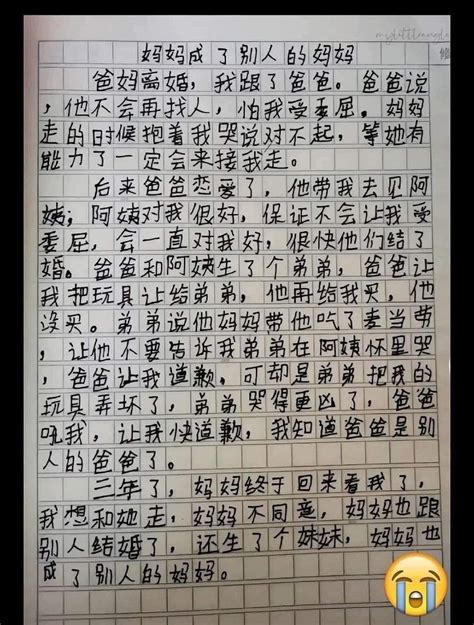 妈妈成了别人的妈妈
爸妈离婚，我跟了爸爸。爸爸说
，他不会再找人，怕我受委屈。妈妈
走的时候抱着我哭说对不起，等她有
能力了一定会来接我走。
后来爸爸恋爱了，他带我去见阿
姨；阿姨对我很好，保证不会让我受
委屈，会一直对我好，很快他们结了
婚。爸爸和阿姨生了个弟弟，爸爸让
我把玩具让给弟弟，他再给我买，他
没买。弟弟说他妈妈带他吃了麦当劳
，让他不要告诉我弟弟在阿姨怀里哭
，爸爸让我道歉。可却是弟弟把我的
玩具弄坏了，弟弟哭得更凶了，爸爸
吼我，让我快道歉，我知道爸爸是别
人的爸爸了。
三年了，妈妈终于回来看我了，
我想和她走，妈妈不同意，妈妈也跟
别人结婚了，还生了个妹妹，妈妈也
成了别人的妈妈。